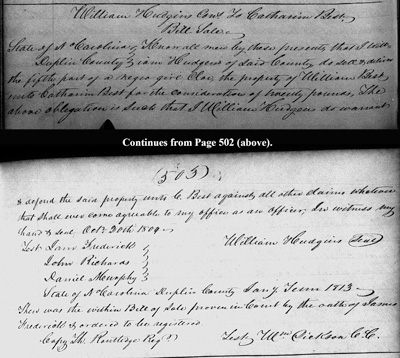 William Hudgins Cons. To Catharin Best
Bill Sale
State of N Carolina, Know all men by these presents that I Will-
Duplin County } iam Hudgins of said County do sell & deliver
the fifth part of a negro girl Clay, the property of William Best,
unto Catharin Best for the consideration of twenty pounds, The
above obligation is such that I William Hudgins do warrant
Continues from Page 502 (above).
(503)
& defend the said property unto C. Best against all other claims whatever
that shall ever come agreable to my office as an officer, In witness my
hand & seal Oct. 20th 1804
Test Jam Frederick } William Hudgins Seal
John Richards }
Daniel Murphy }
State of N Carolina Duplin County Jany Term 1813
Then was the within Bill of Sale proven in Court by the oath of James
Frederick & ordered to be registered
Copy Th. Routledge Reg. Test Wm Dickson C.C.